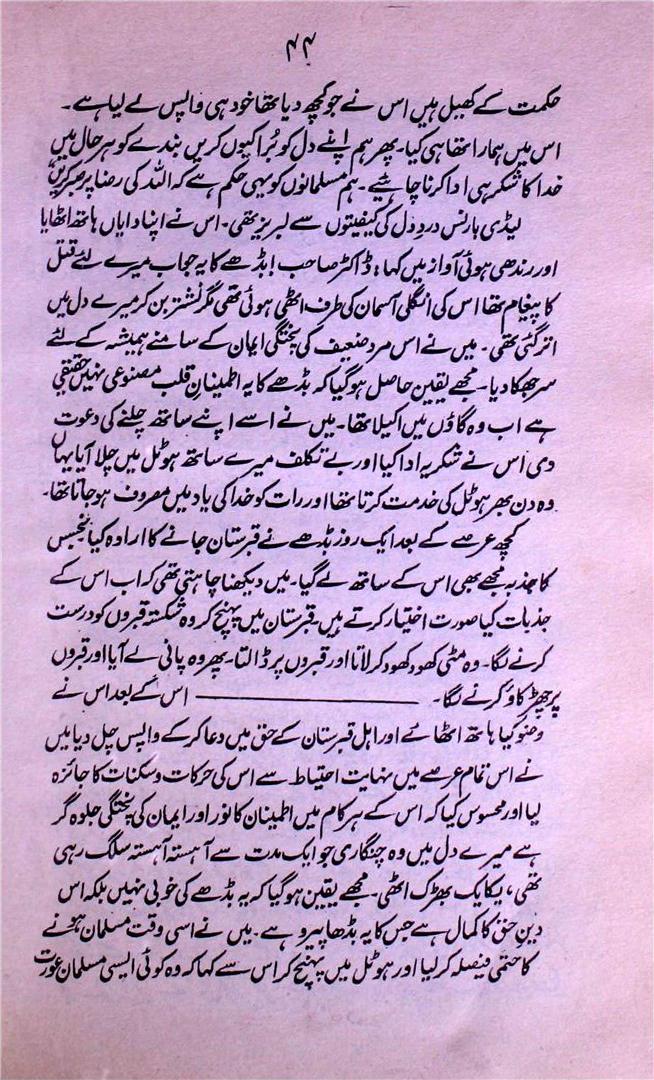 ۴۴
حکمت کے کھیل ہیں اس نے جو کچھ دیا تھا خود ہی واپس لے لیا ہے۔
اس میں ہمارا تھا ہی کیا۔ پھر ہم اپنے دل کو بُرا کیوں کریں بندے کو ہر حال میں
خدا کا شکر ہی ادا کرنا چاہئیے۔ ہم مسلمانوں کو یہی حکم ہے کہ اللہ کی رضا پر صبر کریں،
لیڈی بارنس دردِ دل کی کیفیتوں سے لبریز تھی۔ اس نے اپنا دایاں ہاتھ اٹھایا
اور رندھی ہوئی آواز میں کہا: ڈاکٹر صاحب! بڈھے کا یہ جواب میرے لئے قتل
کا پیغام تھا اس کی انگلی آسمان کی طرف اٹھی ہوئی تھی مگر نشتر بن کر میرے دل میں
اتر گئی تھی۔ میں نے اس مردِ ضعیف کی پختگی ایمان کے سامنے ہمیشہ کے لئے
سر جھکا دیا۔ مجھے یقین حاصل ہو گیا کہ بڈھے کا یہ اطمینانِ قلب مصنوعی نہیں حقیقی
ہے اب وہ گاؤں میں اکیلا تھا۔ میں نے اسے اپنے ساتھ چلنے کی دعوت
دی اس نے شکریہ ادا کیا اور بے تکلف میرے ساتھ ہوٹل میں چلا آیا یہاں
وہ دن بھر ہوٹل کی خدمت کرتا تھا اور رات کو خدا کی یاد میں مصروف ہو جاتا تھا۔
کچھ عرصے کے بعد ایک روز بڈھے نے قبرستان جانے کا ارادہ کیا تجسس
کا جذبہ مجھے بھی اس کے ساتھ لے گیا۔ میں دیکھنا چاہتی تھی کہ اب اس کے
جذبات کیا صورت اختیار کرتے ہیں۔ قبرستان میں پہنچ کر وہ شکستہ قبروں کو درست
کرنے لگا۔ وہ مٹی کھود کھود کر لاتا اور قبروں پر ڈالتا۔ پھر وہ پانی لے آیا اور قبروں
پر چھڑکاؤ کرنے لگا۔ ———————— اس کے بعد اس نے
وضو کیا ہاتھ اٹھائے اور اہل قبرستان کے حق میں دعا کر کے واپس چل دیا میں
نے اس تمام عرصے میں نہایت احتیاط سے اس کی حرکات و سکنات کا جائزہ
لیا اور محسوس کیا کہ اس کے ہر کام میں اطمینان کا نور اور ایمان کی پختگی جلوہ گر
ہے میرے دل میں وہ چنگاری جو ایک مدت سے آہستہ آہستہ سلگ رہی
تھی، یکایک بھڑک اٹھی۔ مجھے یقین ہو گیا کہ یہ بڈھے کی خوبی نہیں بلکہ اس
دینِ حق کا کمال ہے جس کا یہ بڈھا پیرو ہے۔ میں نے اسی وقت مسلمان ہونے
کا حتمی فیصلہ کر لیا اور ہوٹل میں پہنچ کر اس سے کہا کہ وہ کوئی ایسی مسلمان عورت